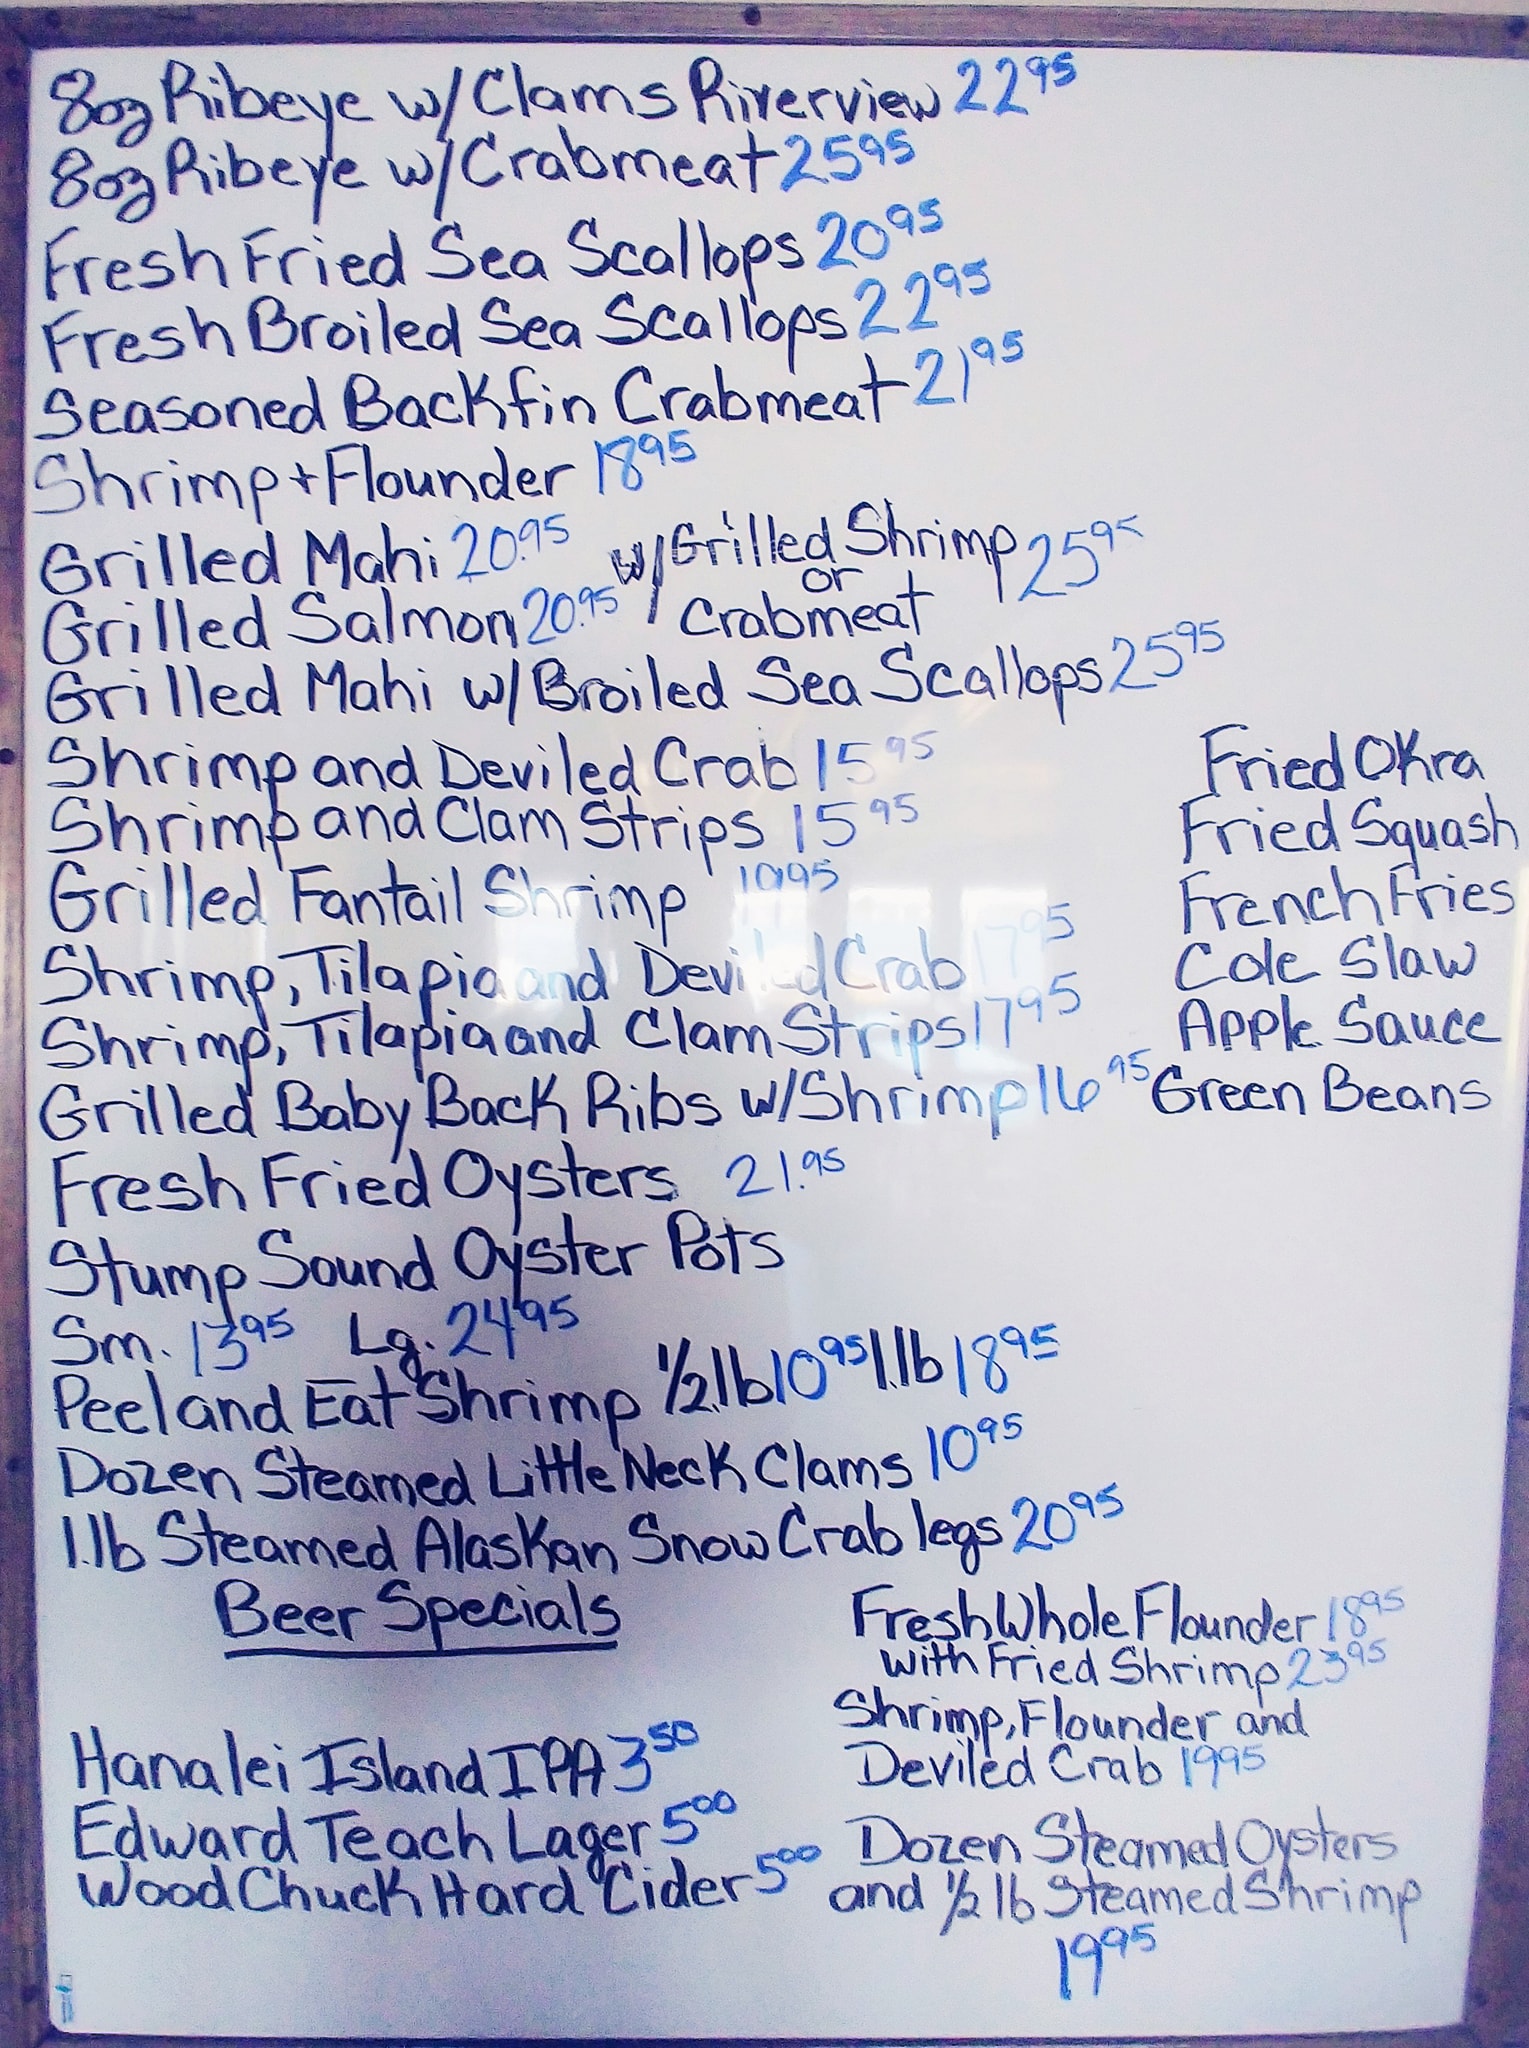 8oz Ribeye w/Clams Riverview 22 95
8oz Ribeye w/Crabmeat 25 95
Fresh Fried Sea Scallops 20 95
Fresh Broiled Sea Scallops 22 95
Seasoned Backfin Crabmeat 21 95
Shrimp + Flounder 18 95
Grilled Mahi 20.95 w/Grilled Shrimp 25 95
or
Grilled Salmon 20.95 Crabmeat
Grilled Mahi w/Broiled Sea Scallops 25 95
Shrimp and Deviled Crab 15 95
Shrimp and Clam Strips 15 95
Grilled Fantail Shrimp 1995
Shrimp, Tilapia and Deviled Crab 17 95
Shrimp, Tilapia and Clam Strips 17 95
Grilled Baby Back Ribs w/Shrimp 16 95
Fried Okra
Fried Squash
French Fries
Cole Slaw
Apple Sauce
Green Beans
Fresh Fried Oysters 21.95
Stump Sound Oyster Pots
Sm. 13 95 Lg. 24 95
Peel and Eat Shrimp 1/2 lb 10 95 1 lb 18 95
Dozen Steamed Little Neck Clams 10 95
1 lb Steamed Alaskan Snow Crab legs 20 95
Beer Specials
Hanalei Island IPA 3 50
Edward Teach Lager 5 00
Wood Chuck Hard Cider 5 00
Fresh Whole Flounder 18 95
with Fried Shrimp 23 95
Shrimp, Flounder and
Deviled Crab 19 95
Dozen Steamed Oysters
and 1/2 lb Steamed Shrimp
19 95